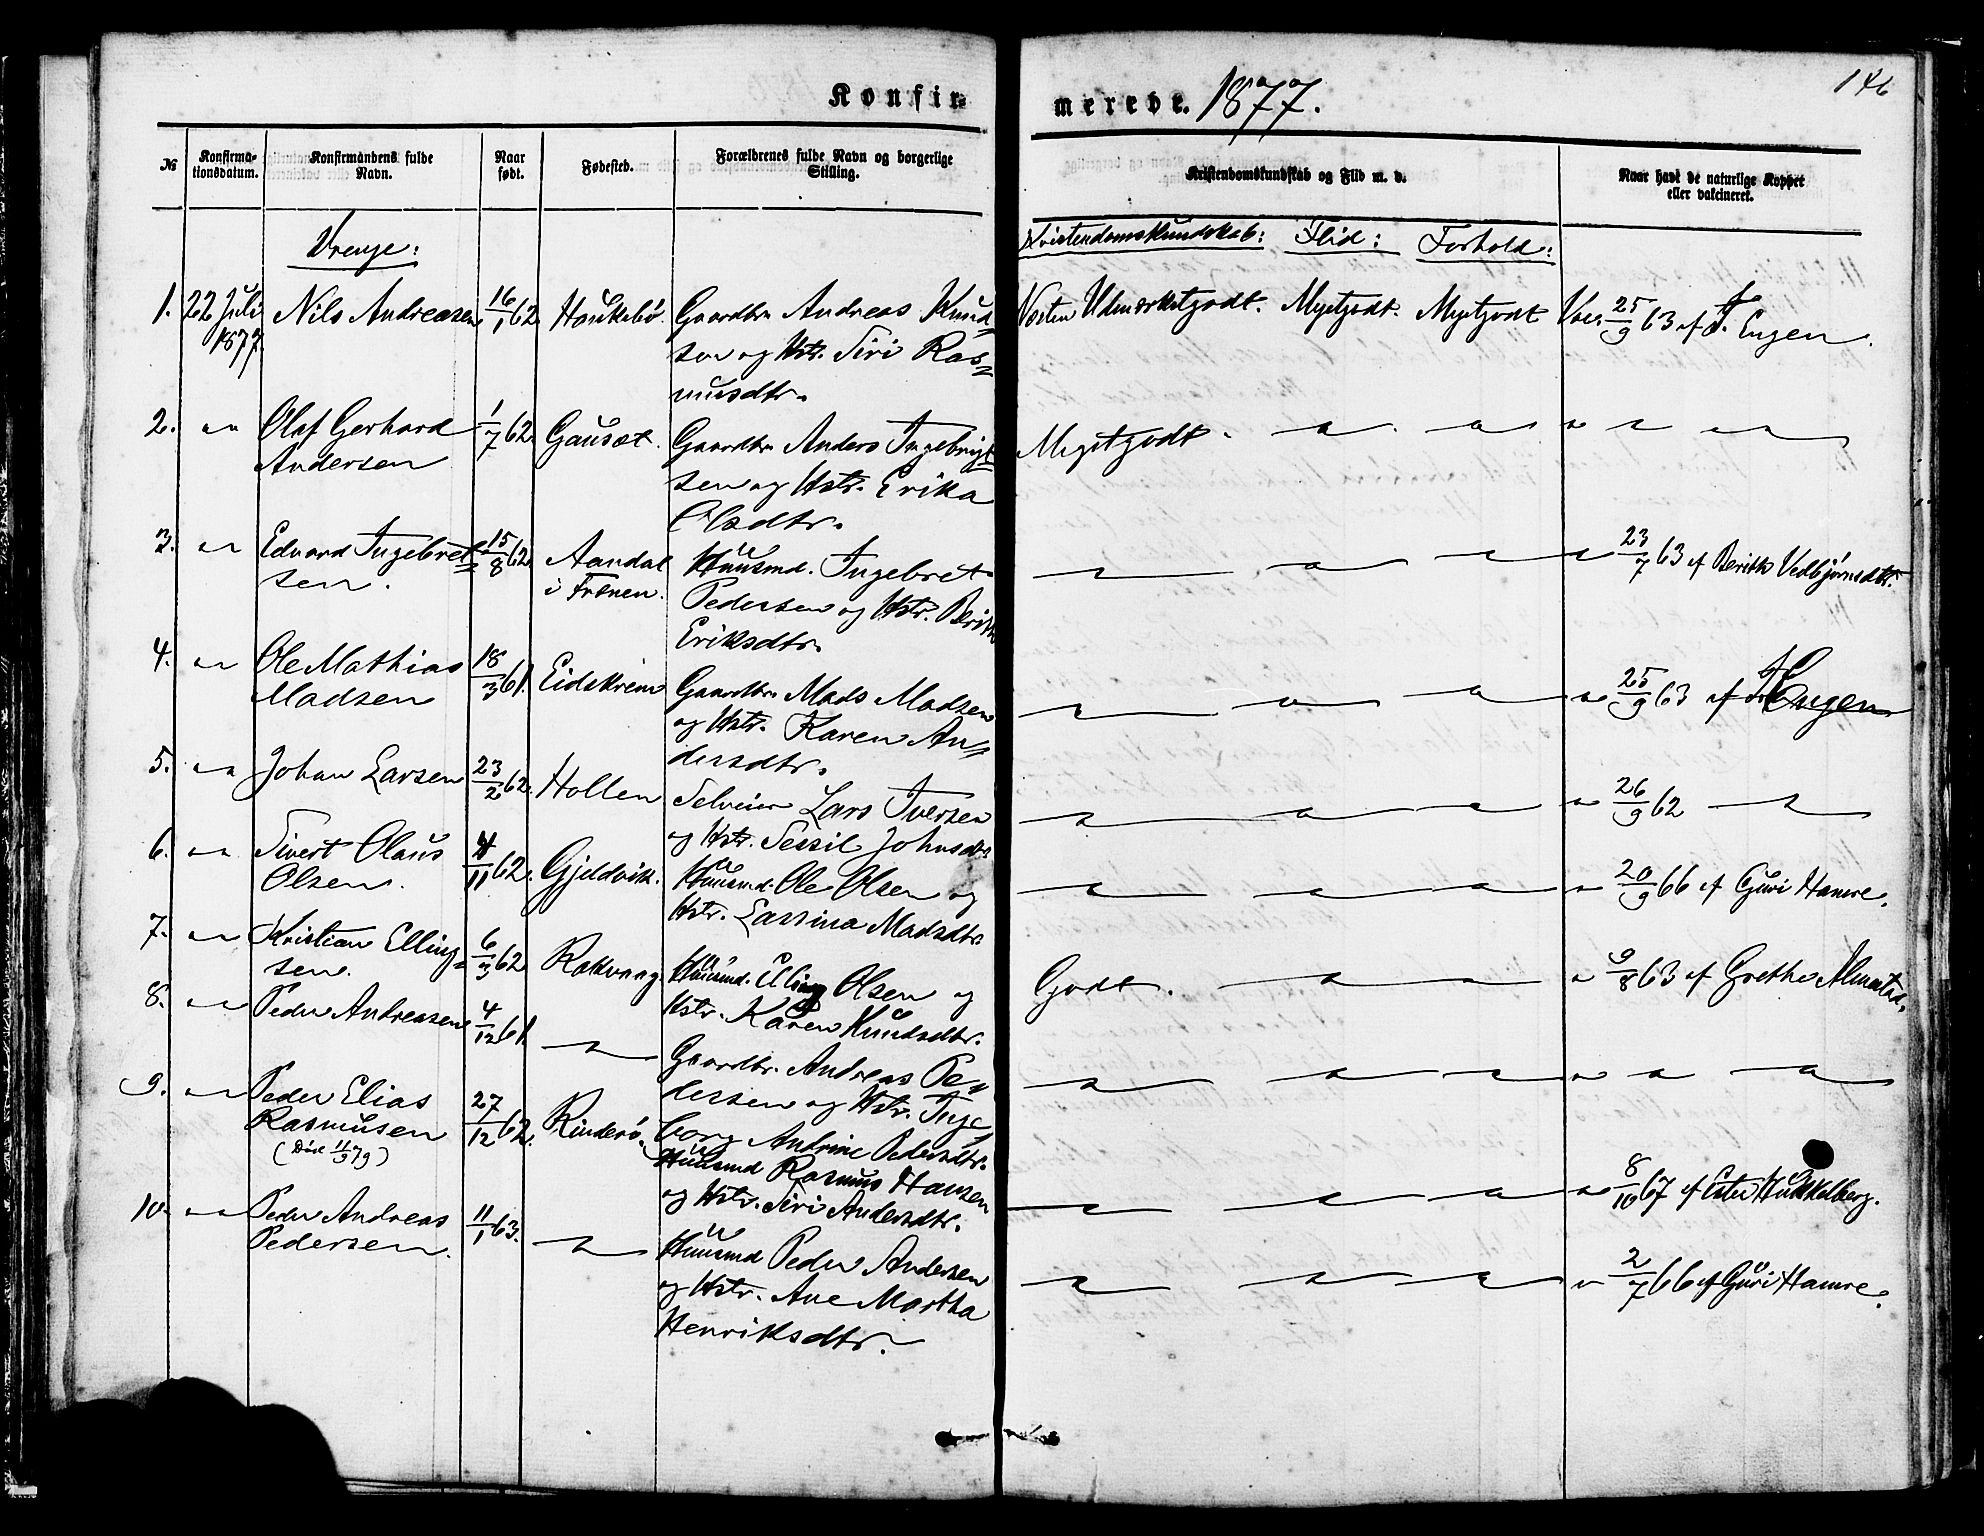 Konfir=
merede. 1877.
146
№
Konfirma-
tionsdatum.
Konfirmandens fulde
Navn.
Naar
født.
Fødested.
Forældrenes fulde Navn og borgerlige
Stilling.
Kristendomskundskab og Flid m. v.
Naar havt de naturlige Kopper
eller vakcineret.
Drenge:
Kristendomskundskab: Flid: Forhold:
1. 22 Juli Nils Andreasen 16/1 62. Haukebø. Gaardbr. Andreas Knud=
1877.
sen og Hstr. Siri Ras=
musdtr.
Næsten Udmærketgodt. Megetgodt. Megetgodt Vac. 25/9 63 af J. Engen.
2. " Olaf Gerhard 1/7 62. Gausæt. Gaardbr. Anders Ingebrigt
Andersen
sen og Hstr. Erika
Olsdtr.
Megetgodt. " " " " "
3. " Edvard Ingebret= 15/8 62 Aandal Huusmd. Ingebret
sen. i Frænen. Pedersen og Hstr. Berith
Eriksdtr.
" " " " 23/7 63 af Berith Vedbjørnsdtr.
4. " Ole Mathias 18/3 61. Eidskrem Gaardbr. Mads Madsen
Madsen
og Hstr. Karen An=
dersdtr.
" " " " 25/9 63 af J. Engen
5. " Johan Larsen 23/2 62. Hollen Selveier Lars Iversen
og Hstr. Sessil Johnsdtr
" " " " 26/9 62 "
6. " Sivert Olaus 4/11 62. Gjeldvik. Huusmd. Ole Olsen og
Olsen.
Hstr. Lassina Madsdtr
" " " " 20/9 66 af Guri Hamre.
7. " Kristian Elling= 6/3 62 Rakvaag Huusmd. Elling Olsen og
sen.
Hstr. Karen Knudsdtr.
Godt. " " " 9/8 63 af Grethe Almestad.
8. " Peder Andreasen 4/12 61. " Gaardbr. Andreas Pe=
dersen og Hstr. Inge
borg Andrine Pedersdtr.
" " " " " "
9. " Peder Elias 27/12 62. Rinderø. Huusmd Rasmus Hansen
Rasmusen
(Død 11/9 79)
og Hstr. Siri Andersdtr.
" " " " 8/10 67 af Ester Hukkelberg.
10. " Peder Andreas 11/1 63. " Huusmd Peder Andersen
Pedersen.
og Hstr. Ane Martha
Henriksdtr.
" " " " 2/7 66 af Guri Hamre.